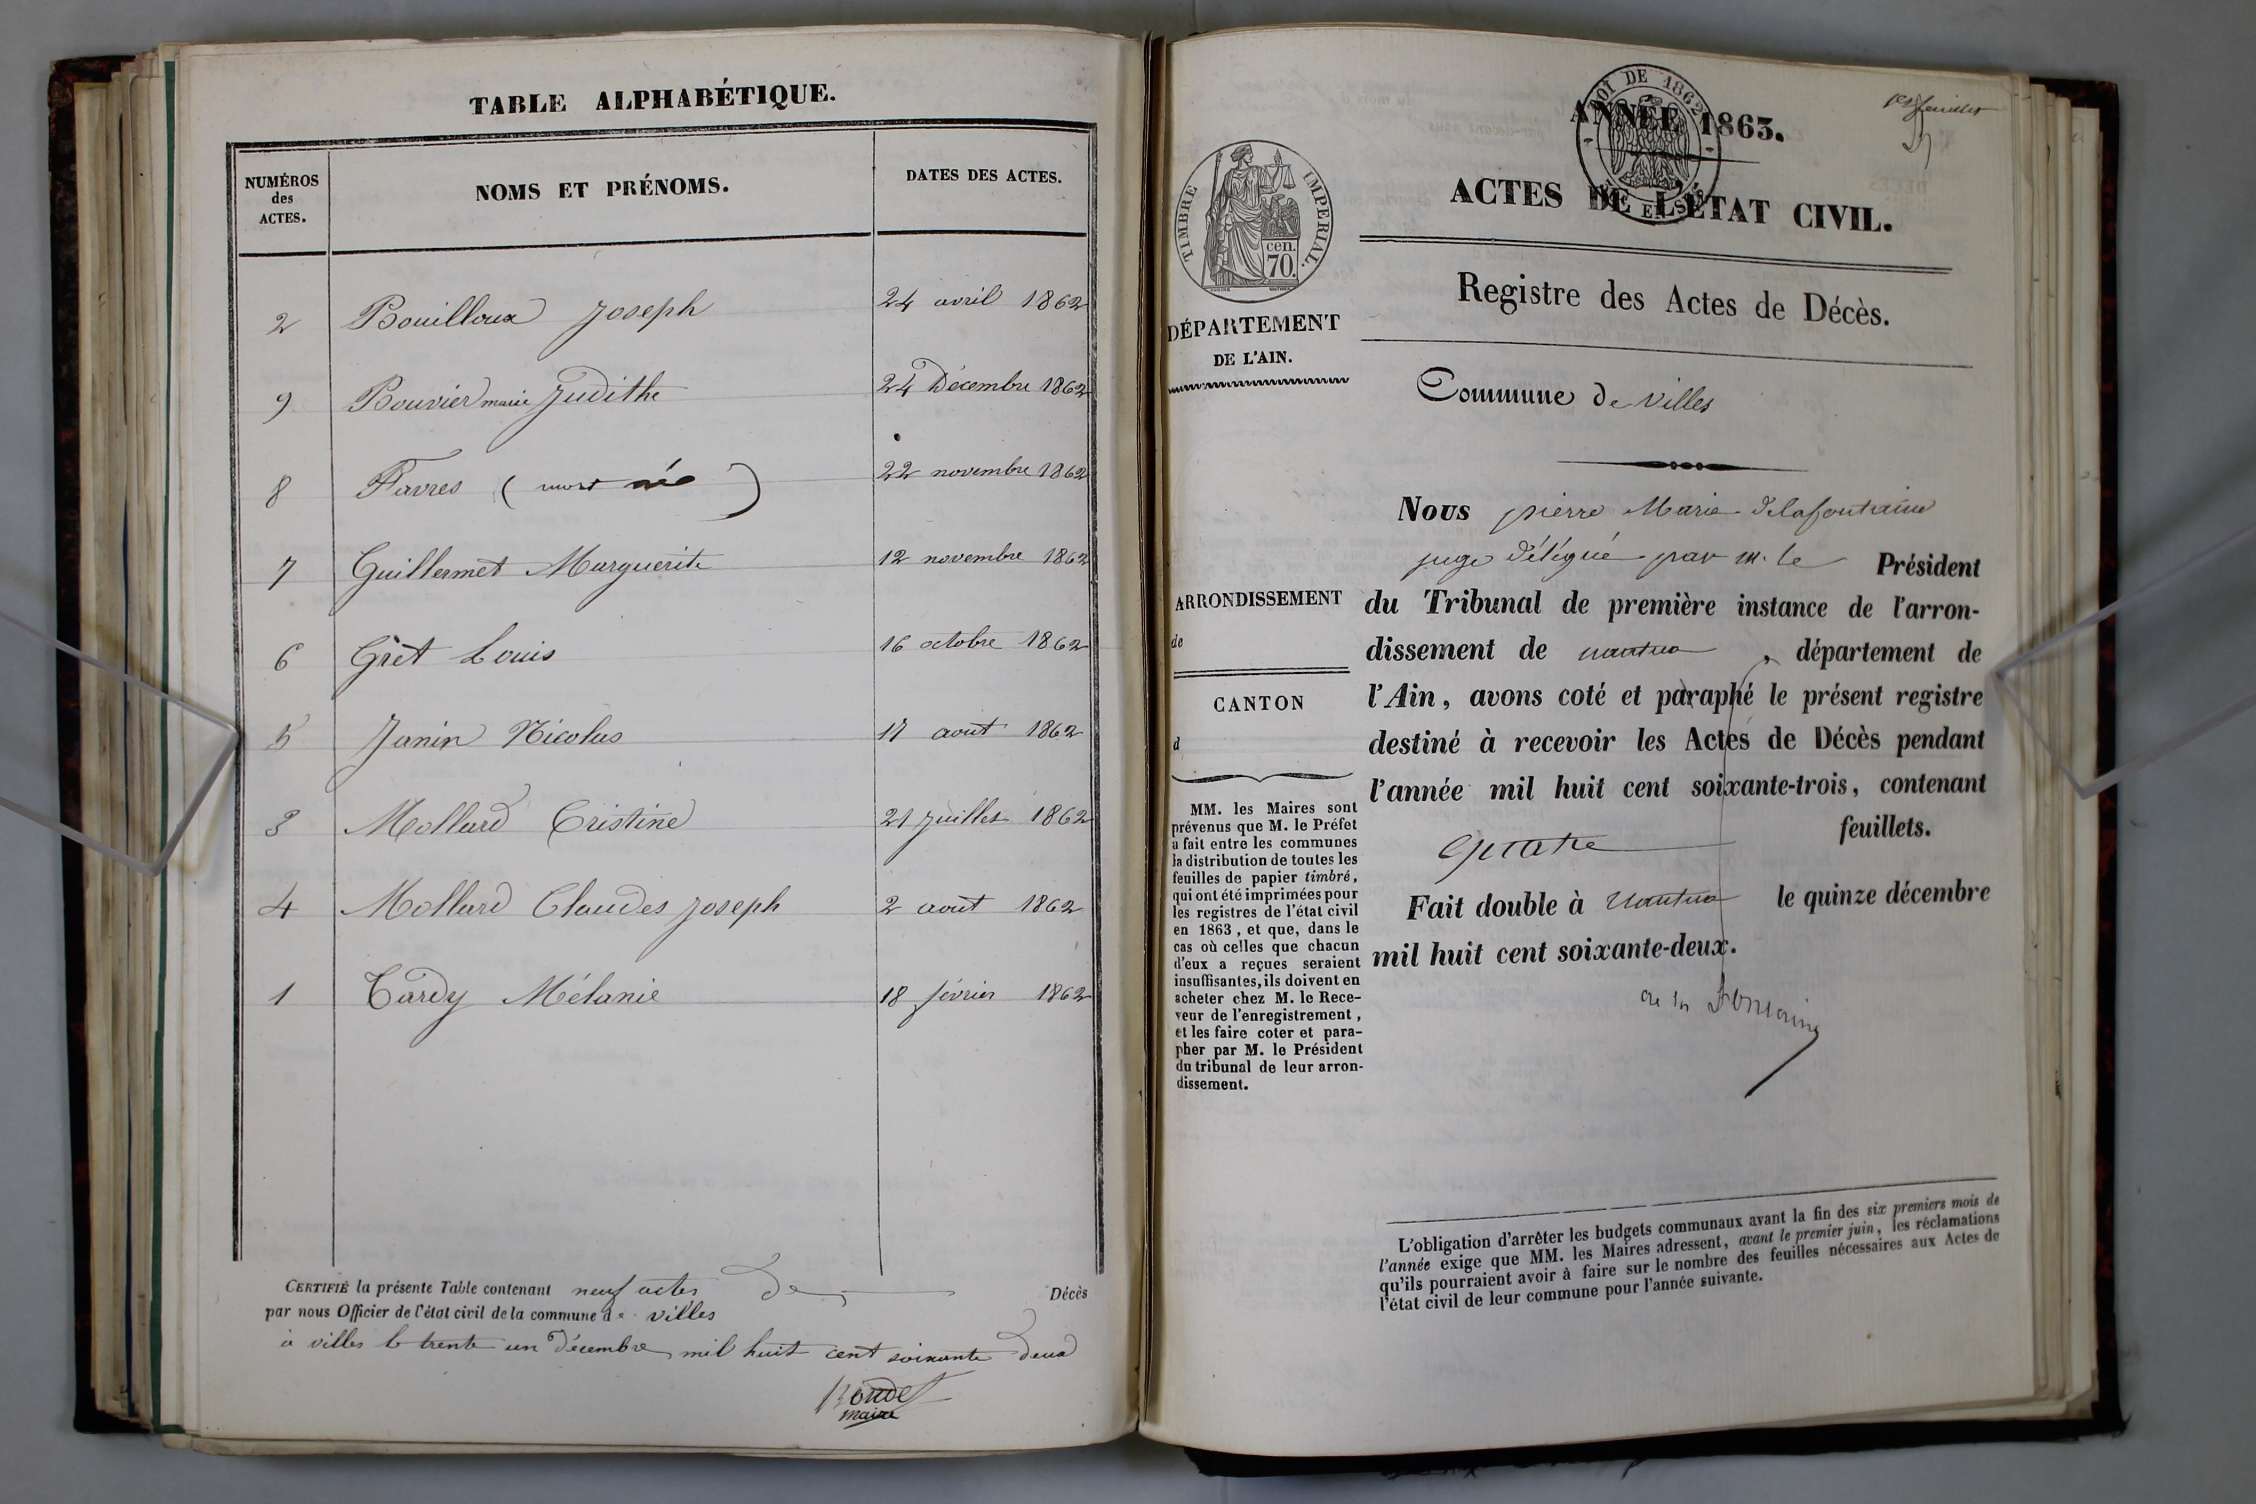 TABLE ALPHABÉTIQUE.
NUMÉROS des ACTES.
NOMS ET PRÉNOMS.
DATES DES ACTES.
2 Bouilloux Joseph 24 avril 1862
9 Bouvier marie Judithe 24 Décembre 1862
8 Favres ( mort né ) 22 novembre 1862
7 Guillermet Marguerite 12 novembre 1862
6 Grêt Louis 16 octobre 1862
5 Janin Nicolas 17 août 1862
3 Mollard Cristine 21 juillet 1862
4 Mollard Claudes joseph 2 août 1862
1 Tardy Mélanie 18 février 1862
CERTIFIÉ la présente Table contenant neuf actes De Décès
par nous Officier de l'état civil de la commune de villes
à villes le trente un Décembre mil huit cent soixante Deux
maire
1er feuillet
LOI DE 1862
ANNÉE 1863.
ACTES DE L'ÉTAT CIVIL.
TIMBRE IMPÉRIAL.
cen.
70.
Registre des Actes de Décès.
DÉPARTEMENT
DE L'AIN.
Commune De villes
Nous pierre Marie Delafontaine
juge Délégué par m. le Président
du Tribunal de première instance de l'arron-
dissement de nantua, département de
l'Ain, avons coté et paraphé le présent registre
destiné à recevoir les Actes de Décès pendant
l'année mil huit cent soixante-trois, contenant
quatre feuillets.
Fait double à nantua le quinze décembre
mil huit cent soixante-deux.
De la Fontaine
ARRONDISSEMENT
de
CANTON
d
MM. les Maires sont
prévenus que M. le Préfet
a fait entre les communes
la distribution de toutes les
feuilles de papier timbré,
qui ont été imprimées pour
les registres de l'état civil
en 1863, et que, dans le
cas où celles que chacun
d'eux a reçues seraient
insuffisantes, ils doivent en
acheter chez M. le Rece-
veur de l'enregistrement,
et les faire coter et para-
pher par M. le Président
du tribunal de leur arron-
dissement.
L'obligation d'arrêter les budgets communaux avant la fin des six premiers mois de
l'année exige que MM. les Maires adressent, avant le premier juin, les réclamations
qu'ils pourraient avoir à faire sur le nombre des feuilles nécessaires aux Actes de
l'état civil de leur commune pour l'année suivante.